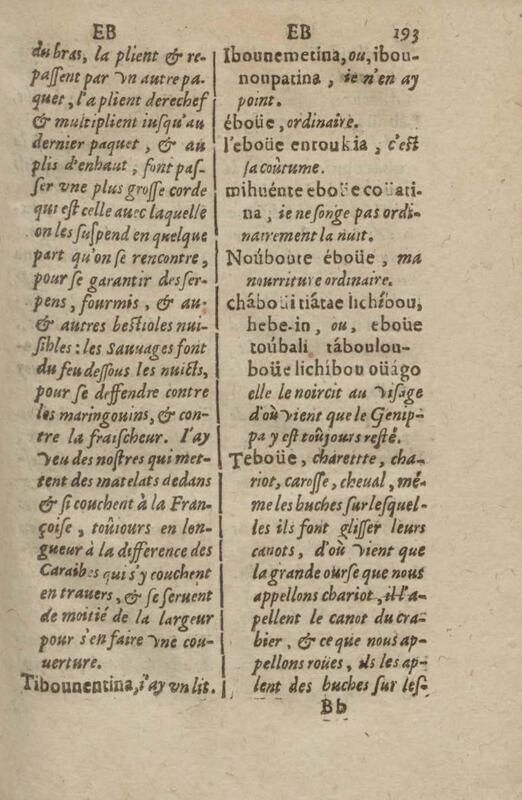 EB
EB
193
du bras, la plient & re-
passent par vn autre pa-
quet, l'a plient derechef
& multiplient iusqu'au
dernier paquet, & au
plis d'enhaut, font pas-
ser vne plus grosse corde
qui est celle auec laquelle
on les suspend en quelque
part qu'on se rencontre,
pour se garantir des ser-
pens, fourmis, & au-
& autres bestioles nui-
sibles: les Sauuages font
du feu dessous les nuicts,
pour se deffendre contre
les maringouins, & con-
tre la fraischeur. I'ay
veu des nostres qui met-
tent des matelats dedans
& si couchent à la Fran-
çoise, toûiours en lon-
gueur à la difference des
Caraibes qui s'y couchent
en trauers, & se seruent
de moitié de la largeur
pour s'en faire vne cou-
uerture.
Tibounentina, i'ay vn lit.
Ibounemetina, ou, ibou-
noupatina, ie n'en ay
point.
éboüe, ordinaire.
l'eboüe entoukia, c'est
la coûtume.
mihuénte eboüe coüati-
na, ie ne songe pas ordi-
nairement la nuit.
Noúboute éboüe, ma
nourriture ordinaire.
cháboüi tiátae lichíbou,
hebe-in, ou, eboüe
toúbali táboulou-
boüe lichíbou oüágo
elle le noircit au visage
d'où vient que le Genip-
pa y est toûjours resté.
Teboüe, charettte, cha-
riot, carosse, cheval, mé-
me les buches sur lesquel-
les ils font glisser leurs
canots, d'où vient que
la grande ourse que nous
appellons chariot, il l'a-
pellent le canot du cra-
bier, & ce que nous ap-
pellons roües, ils les ap-
lent des buches sur les-
Bb